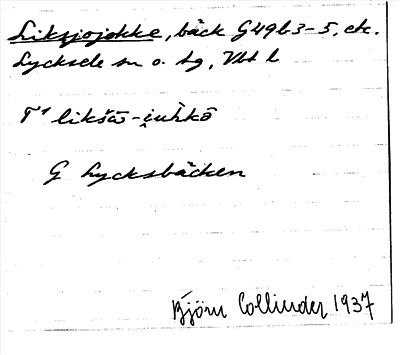 Liksjojokke, bäck G49b3-5, etc.
Lycksele sn o. tg, Vbt l
T¹ likšɷ̄ -i̯uh̀kō
G Lycksbäcken
Björn Collinder 1937